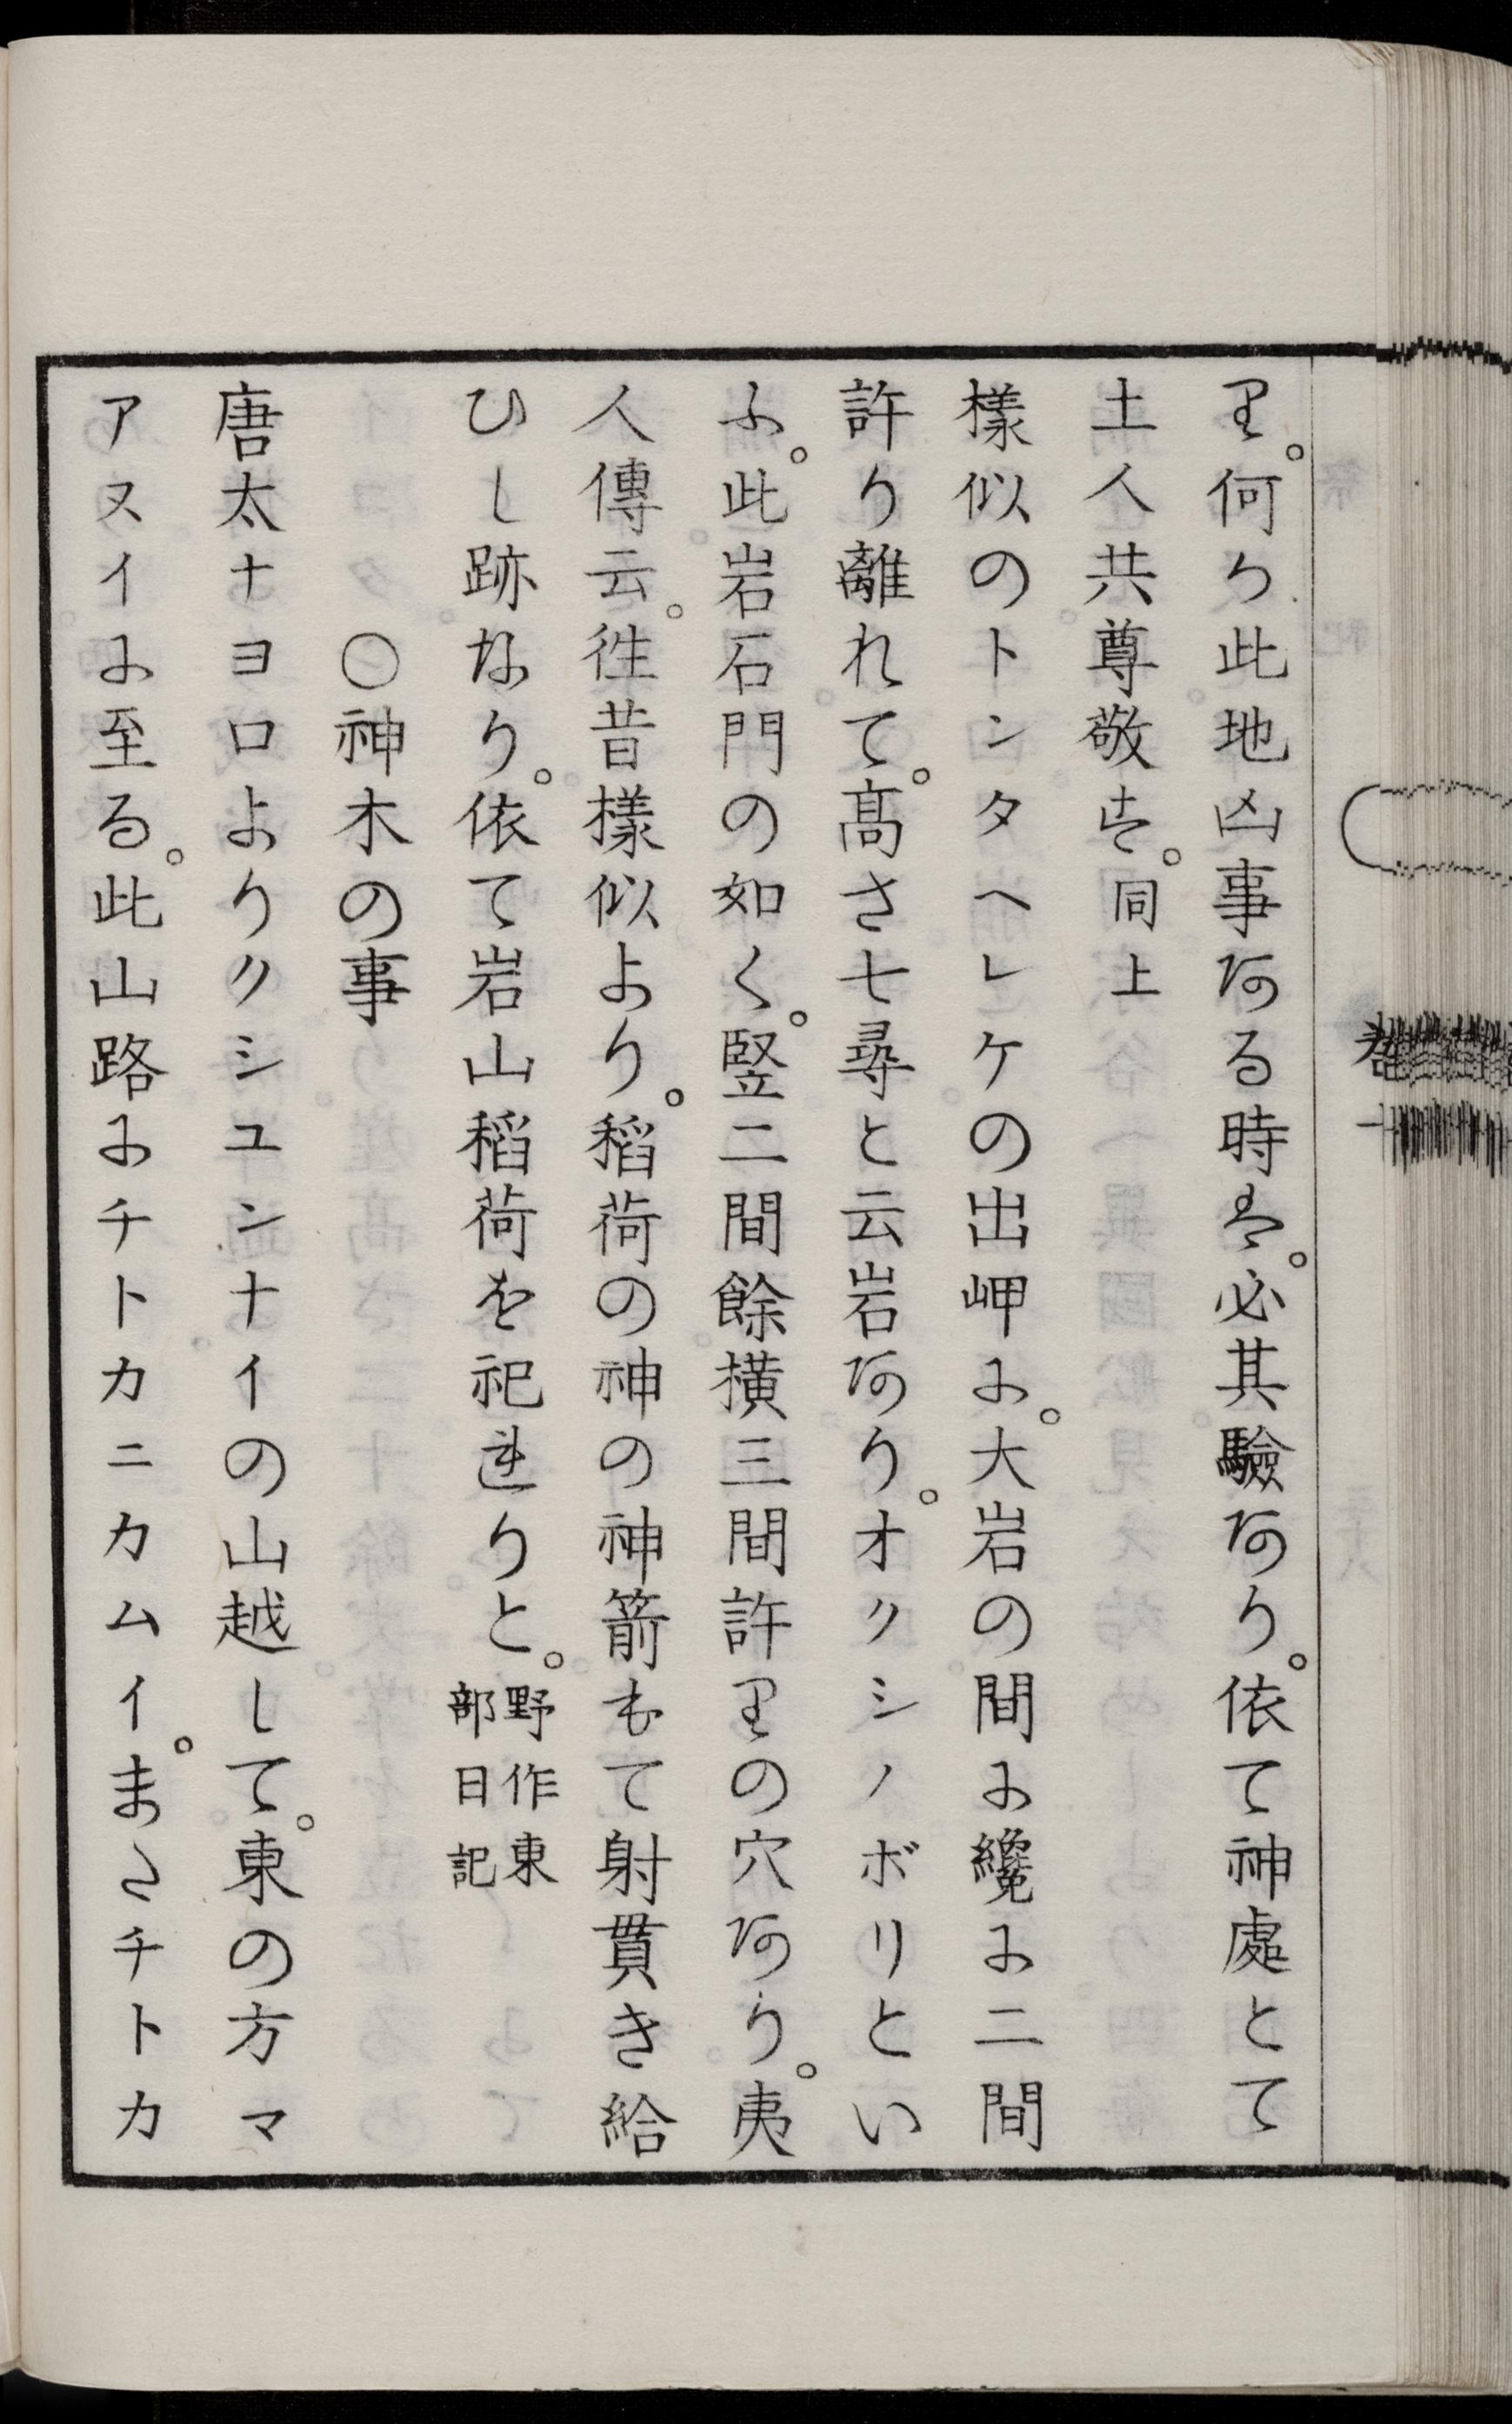 り。何か此地凶事ある時は。必其驗あり。依て神處とて
土人共尊敬す。同上
樣似のトンタヘレケの出岬に。大岩の間に纔に二間
許り離れて。髙さ七尋と云岩あり。オクシノボリとい
ふ。此岩石門の如く。竪二間餘橫三間許りの穴あり。夷
人傳云。徃昔樣似より。稻荷の神の神箭もて射貫き給
ひし跡なり。依て岩山稻荷を祀れりと。野作東部日記
〇神木の事
唐太ナヨロよりクシユンナイの山越して。東の方マ
アヌイに至る。此山路にチトカニカムイ。またチトカ